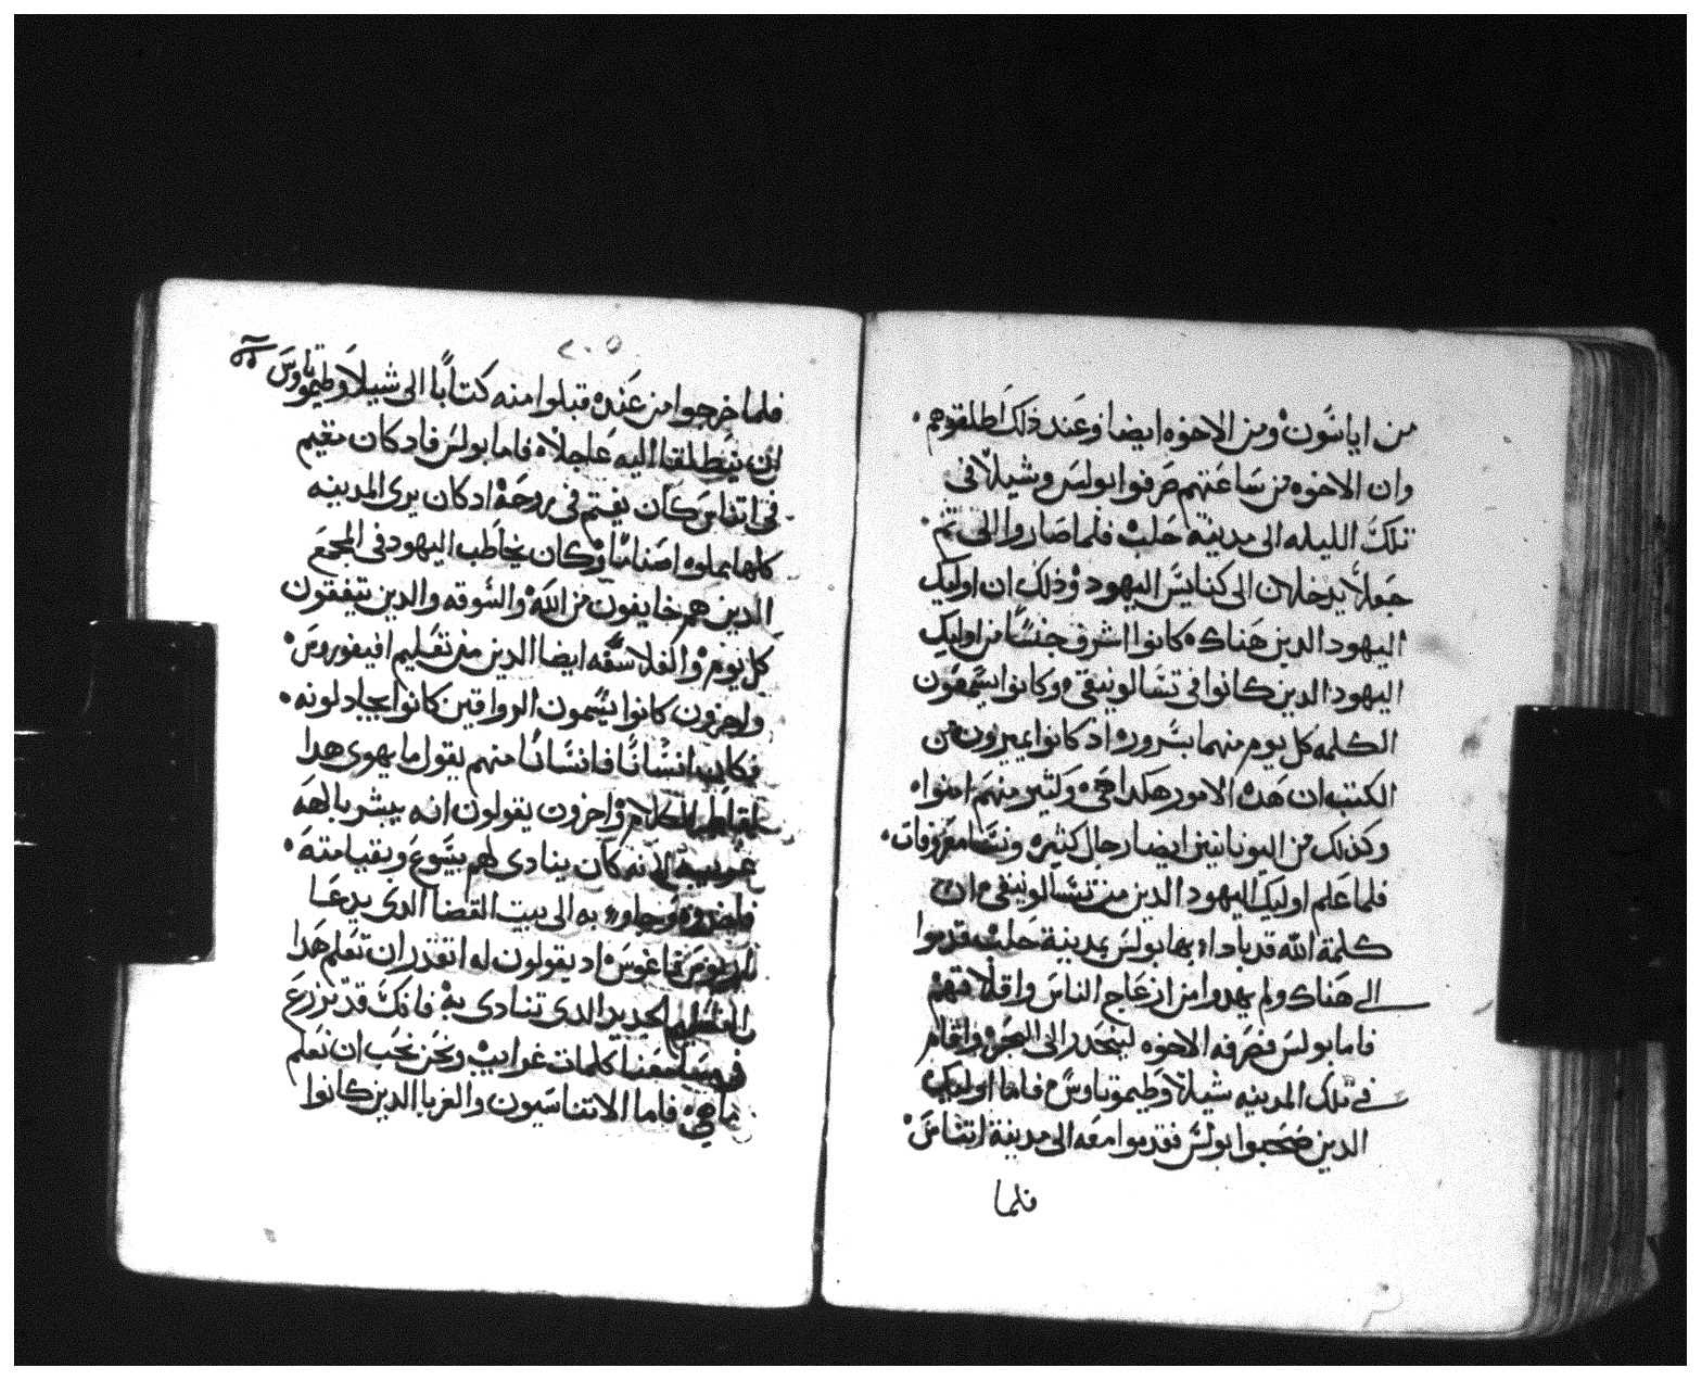 من اياسون ومن الاخوه ايضا وعند ذلك اطلقوهم
وان الاخوه من ساعتهم صرفوا بولس وشيلا فى
تلك الليله الى مدينة حلب فلما صاروا الى ثم
جعلا يدخلان الى كنايس اليهود وذلك ان اوليك
اليهود الدين هناك كانوا اشرف جنسًا من اوليك
اليهود الدين كانوا فى تسالونيقى وكانوا يسمعون
الكلمه كل يوم منهما بسروره اد كانوا يميزون من
الكتب ان هده الامور هكدا هى وكثير منهم امنوا
وكذلك من اليونانيين ايضا رجال كثيره ونسا معروفات
فلما علم اوليك اليهود الدين من تسالونيقى ان
كلمة الله قد نادا بها بولس بمدينة حلب قدموا
الى هناك ولم يهدوا من ازعاج الناس واقلاقهم
فاما بولس فصرفه الاخوه لينحدر الى البحر واقام
فى تلك المدينه شيلا وطيموتاوس فاما اوليك
الدين صحبوا بولس فقدموا معه الى مدينة اتناس
فلما
٢٠٥
فلما خرجوا من عنده قبلوا منه كتابًا الى شيلا وطيموتاوس
ان ينطلقا اليه عاجلا فاما بولس فاد كان مقيم
فى اتناس كان يغتم فى روحه اد كان يرى المدينه
كلها مملوه اصناما وكان يخاطب اليهود فى المجمع
الدين هم خايفون من الله والسوقه والدين يتفقون
كل يوم والفلاسفه ايضا الدين من تعليم افيقوروس
واخرون كانوا يسمون الرواقين كانوا يجادلونه
فكان انسانًا فانسانًا منهم يقول ما يهوى هدا
لقاط الكلام واخرون يقولون انه يبشر بالهه
غريبه لانه كان ينادى لهم بيسوع وبقيامته
فاخدوه وجاوا به الى بيت القضا الدى يدعا
اريوس فاغوس اد يقولون له اتقدر ان تعلم هدا
التعليم الجديد الدى تنادى به فانك قد تزرع
فى مسامعنا كلمات غرايب ونحن نحب ان نعلم
ما هى فاما الاتناسيون والغربا الدين كانوا